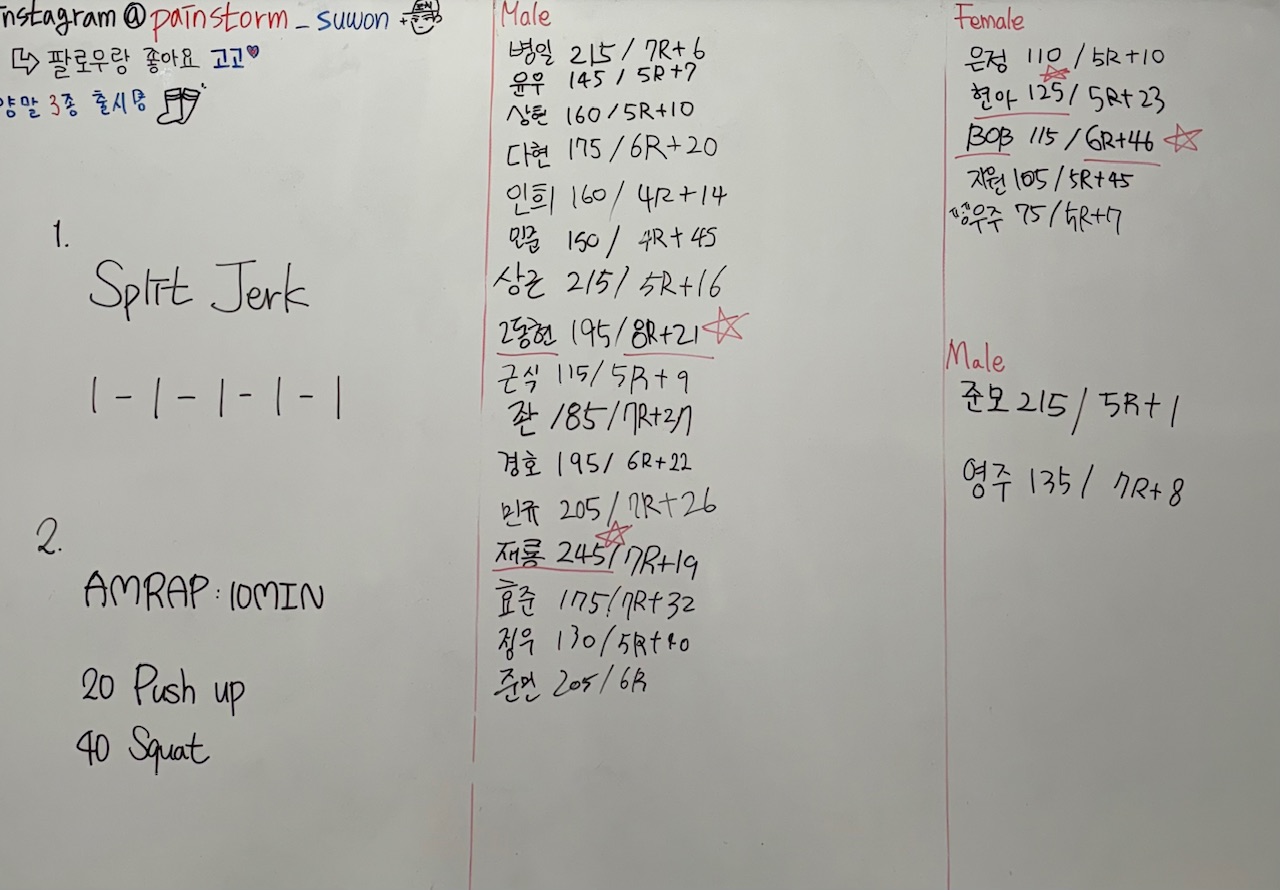 instagram@painstorm_suwon
팔로우랑 좋아요 고고
양말 3종 출시
1.
Split Jerk
1 - 1 - 1 - 1 - 1
2.
AMRAP : 10MIN
20 Push up
40 Squat
Male
병일 215 / 7R+6
윤우 145 / 5R+7
상현 160 / 5R+10
다현 175 / 6R+20
인희 160 / 4R+14
민준 150 / 4R+45
상근 215 / 5R+16
2동현 195 / 8R+21
근식 115 / 5R+9
좐 185 / 7R+27
경호 195 / 6R+22
민규 205 / 7R+26
재룡 245 / 7R+19
효준 175 / 7R+32
정우 130 / 5R+10
준민 205 / 6R
Female
은정 110 / 5R+10
현아 125 / 5R+23
BOB 115 / 6R+46
지원 105 / 5R+45
우주 75 / 5R+7
Male
준모 215 / 5R+1
영주 135 / 7R+8